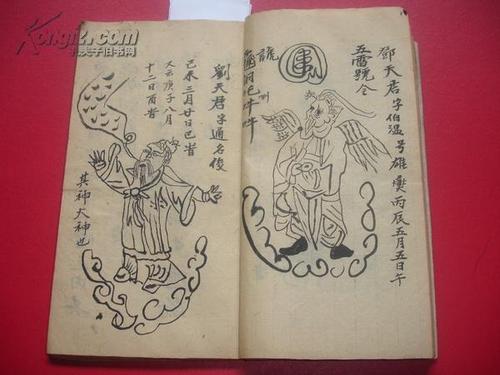 鄧天君字伯温号雄爕丙辰五月五日午
五雷號令
劉天君字通名俊
己未三月廿日巳皆
大云庚子八月
十二日酉皆
其神大神也
Kongfz.com
孔夫子旧书网